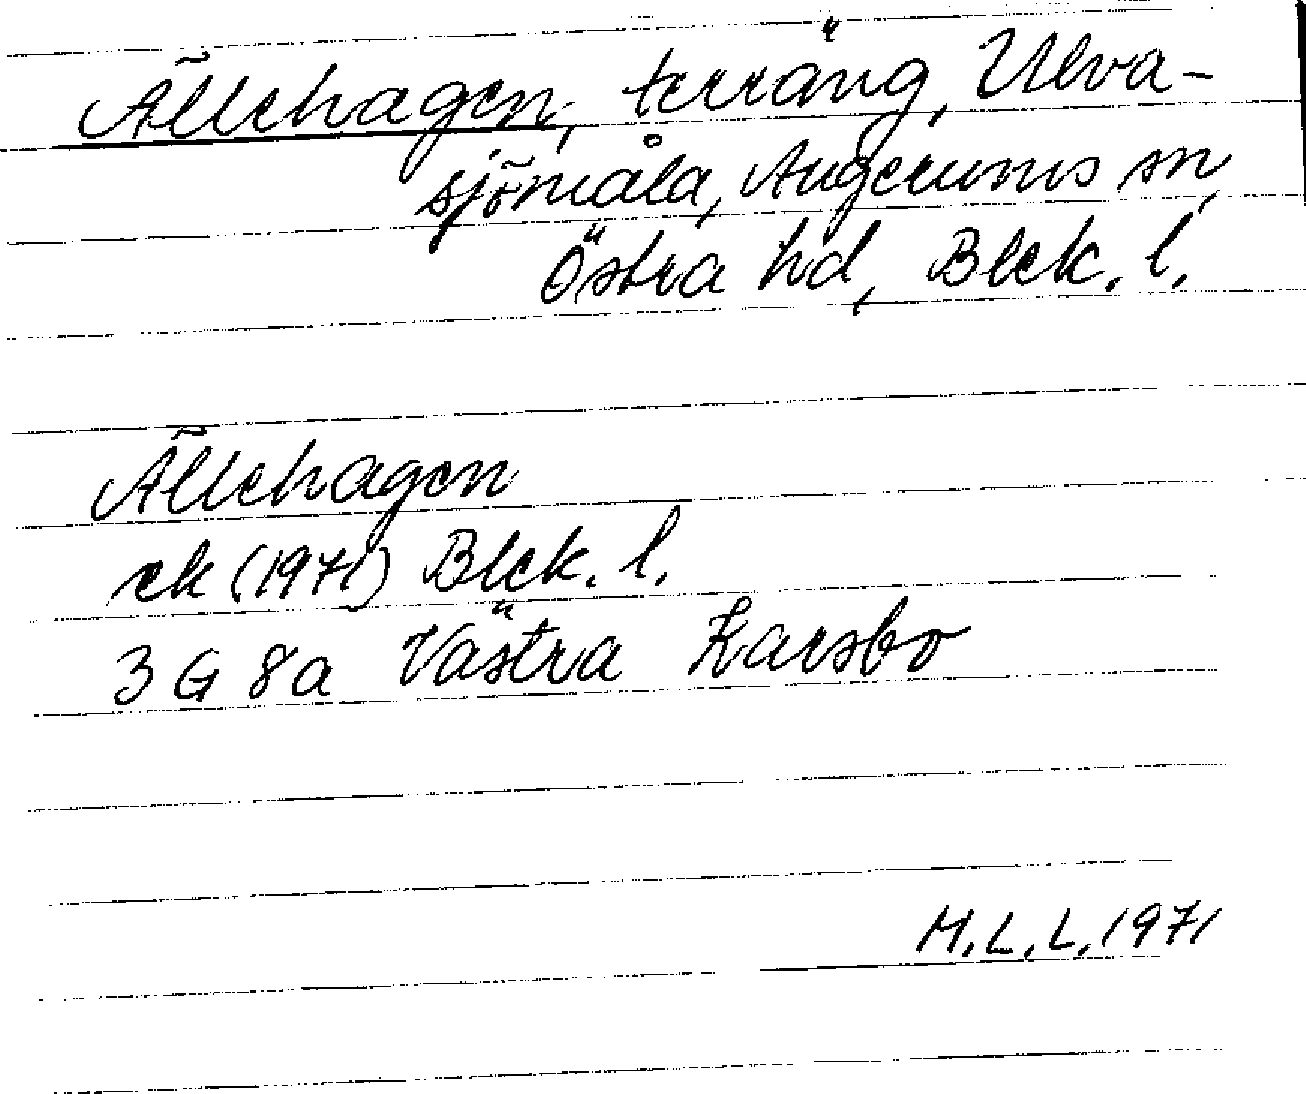 Ällehagen, terräng, Ulva-
sjömåla, Augerums sn,
Östra hd, Blek. l.
Ällehagen
ek (1971) Blek. l.
3 G 8a Västra Karsbo
M. L. L. 1971